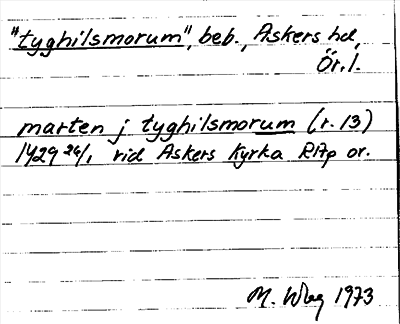 "tyghilsmorum", beb., Askers hd,
Ör. l.
marten j tyghilsmorum (r. 13)
1429 26/1 vid Askers Kyrka RAp or.
M. 1973